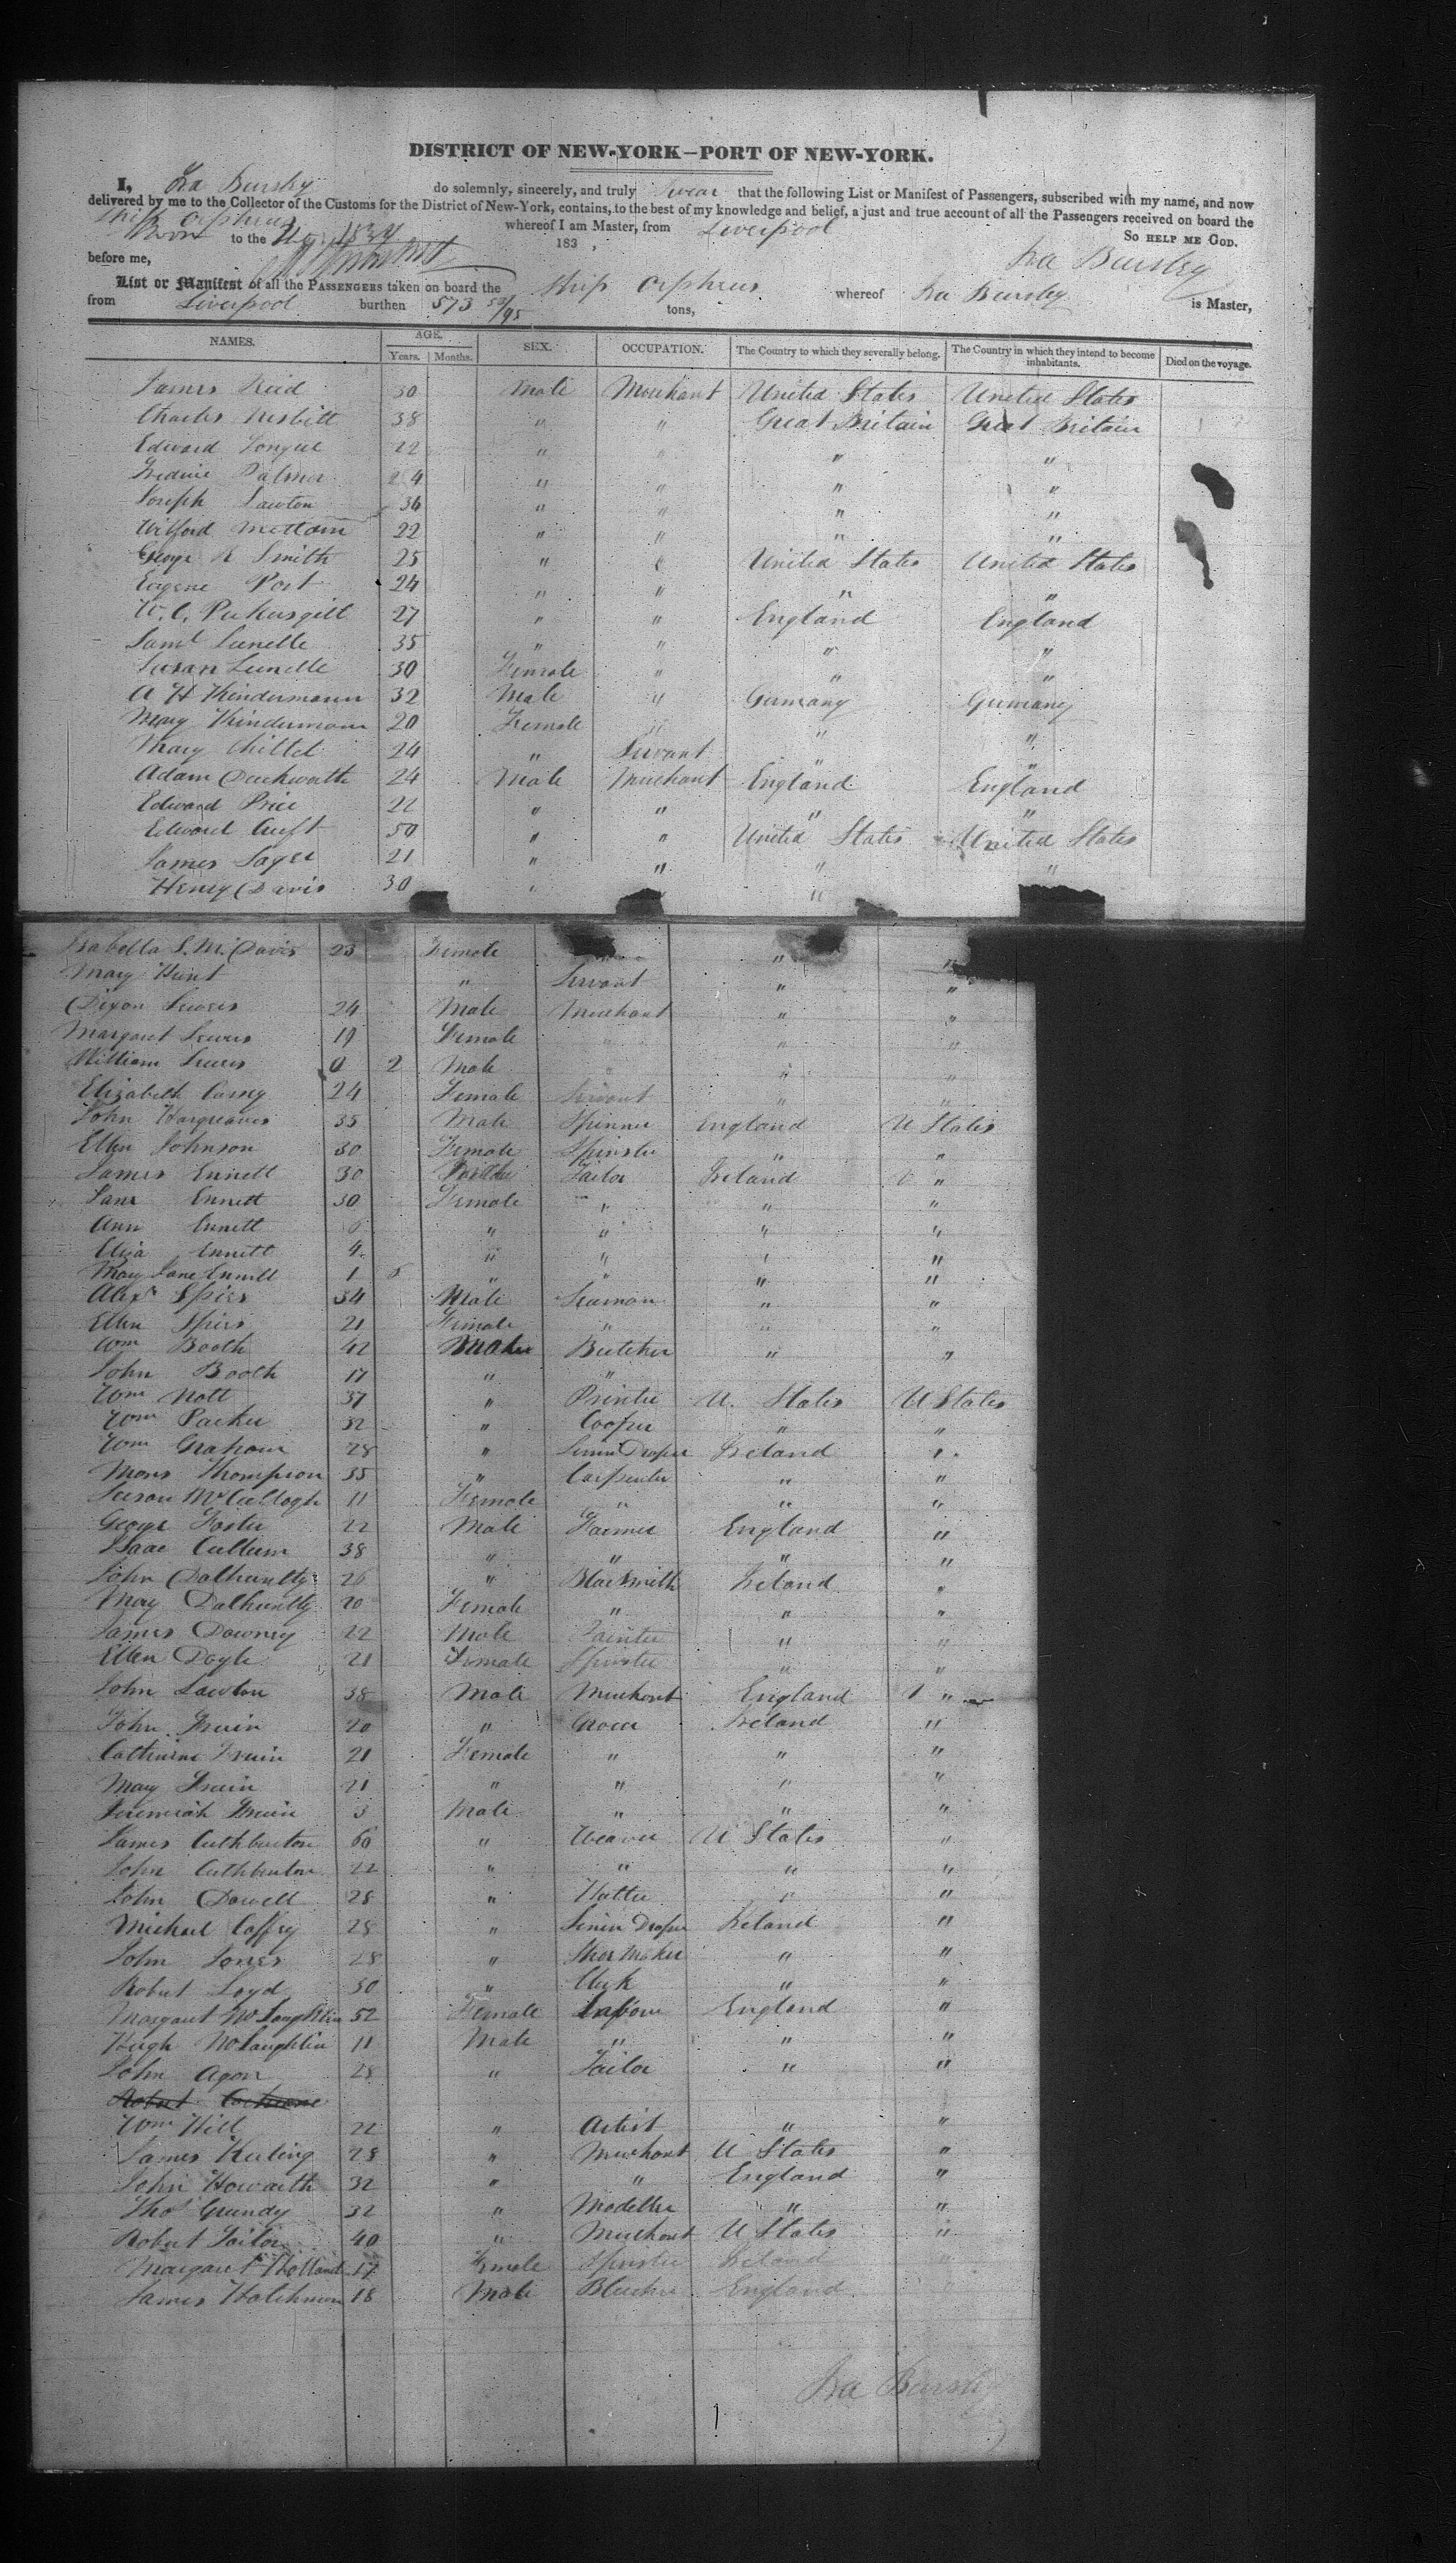 DISTRICT OF NEW-YORK—PORT OF NEW-YORK.
I, Ira Bursley do solemnly, sincerely, and truly swear that the following List or Manifest of Passengers, subscribed with my name, and now
delivered by me to the Collector of the Customs for the District of New-York, contains, to the best of my knowledge and belief, a just and true account of all the Passengers received on board the
Ship Orpheus whereof I am Master, from Liverpool
Sworn to the 1834 183 , So HELP ME GOD.
before me, Ira Bursley
List or Manifest of all the PASSENGERS taken on board the Ship Orpheus whereof Ira Bursley is Master,
from Liverpool burthen 573 50/95 tons,
NAMES. AGE. SEX. OCCUPATION. The Country to which they severally belong. The Country in which they intend to become inhabitants. Died on the voyage.
Years. Months.
James Reid 30 Male Merchant United States United States
Charles Nesbitt 38 " " Great Britain Great Britain
Edward Tongue 22 " " " "
Palmer 24 " " " "
Joseph Lawton 36 " " " "
Wilford Mottam 22 " " " "
George R Smith 25 " " United States United States
Eugene Post 24 " " " "
W. C. Pickersgill 27 " " England England
Saml Lunelle 35 " " " "
Susan Lunelle 30 Female " " "
A H Kindermann 32 Male " Germany Germany
Mary Kindermann 20 Female " " "
Mary 24 " Servant " "
Adam Duckworth 24 Male Merchant England England
Edward Price 22 " " " "
Edward Cruft 50 " " United States United States
James Sayer 21 " " " "
Henry Davis 30 " "
Isabella S. M. Davis 23 Female " "
Mary Hunt " Servant " "
Dixon Lewers 24 Male Merchant " "
Margaret Lewers 19 Female " " "
William Lewers 0 2 Male " " "
Elizabeth Carney 24 Female Servant " "
John Hargreaves 35 Male Spinner England U States
Ellen Johnson 30 Female Spinster " "
James Ennett 30 Tailor Ireland "
Jane Ennett 30 Female " " "
Ann Ennett 6 " " " "
Eliza Ennett 4 " " " "
Mary Jane Ennett 1 5 " " " "
Alexr Spiers 34 Male Seaman " "
Ellen Spiers 21 Female " " "
Wm Booth 42 Male Butcher " "
John Booth 17 " " "
Wm Nott 37 " Printer U. States U States
Wm Parker 32 " Cooper " "
Wm Graham 28 " Linen Draper Ireland "
Thompson 35 " Carpenter " "
Susan McCullogh 11 Female " " "
George Foster 22 Male Farmer England "
Isaac Cullum 38 " " " "
John Dalhuntly 26 " Blacksmith Ireland "
Mary Dalhuntly 20 Female " " "
James Downey 22 Male Painter " "
Ellen Doyle 21 Female Spinster " "
John Lawton 38 Male Merchant England "
John Irwin 20 " Grocer Ireland "
Catherine Irwin 21 Female " " "
Mary Irwin 21 " " " "
Jeremiah Irwin 3 Male " " "
James Cuthbertson 60 " Weaver U States "
John Cuthbertson 22 " " " "
John Dowell 28 " Hatter " "
Michael Caffry 28 " Linen Draper Ireland "
John Jones 28 " Shoe Maker " "
Robert Loyd 30 " Clerk " "
Margaret McLaughlin 52 Female Labour England "
Hugh McLaughlin 11 Male " " "
John Agon 28 " Tailor " "
Robert Cochrane
Wm Hill 22 " Artist " "
James Keeling 28 " Merchant U States "
John Howarth 32 " " England "
Thos Grundy 32 " Modeller " "
Robert Tailor 40 " Merchant U States "
Margaret Holland 17 Female Spinster Ireland "
James 18 Male England
Ira Bursley